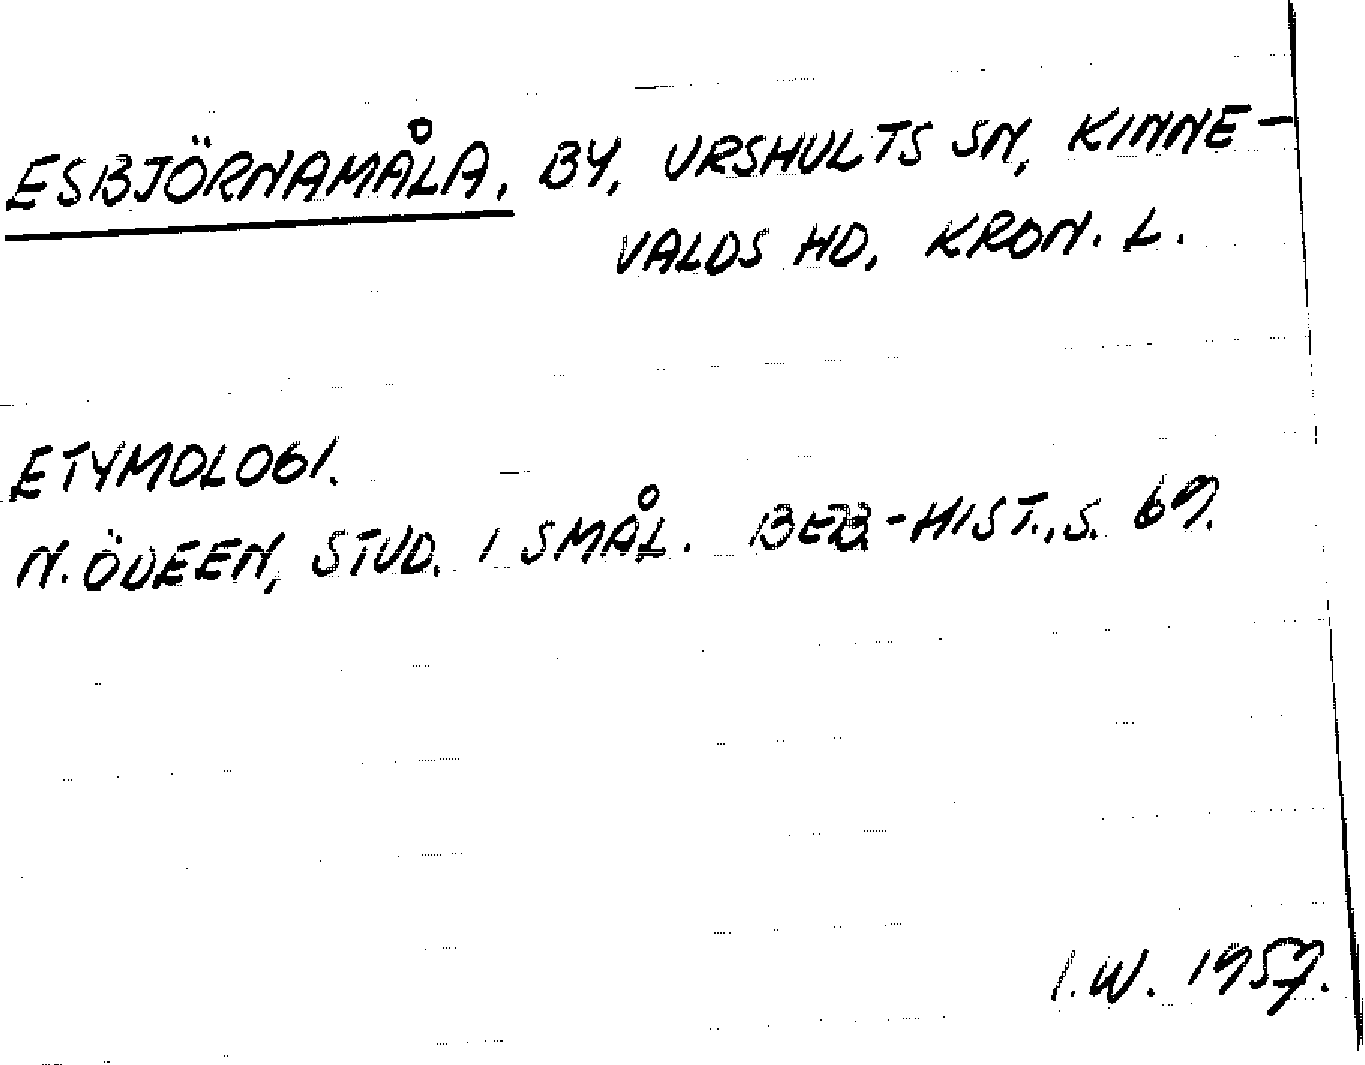 ESBJÖRNAMÅLA, BY, URSHULTS SN, KINNE-
VALDS HD, KRON. L.
ETYMOLOGI.
N. ÖDEEN, STUD. I SMÅL. BEB.-HIST., S. 69.
I.W. 1957.